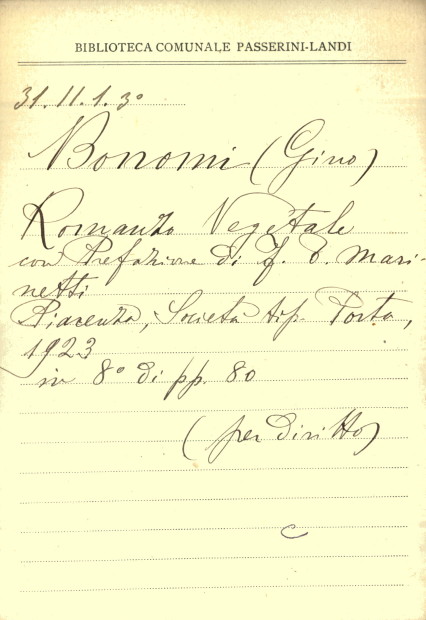 BIBLIOTECA COMUNALE PASSERINI-LANDI
31. 11. 1. 3°
Bonomi (Gino)
Romanzo Vegetale
con Prefazione di F. T. Mari-
netti
Piacenza, Società tip. Porta,
1923
in 8° di pp. 80
(per diritto)
c